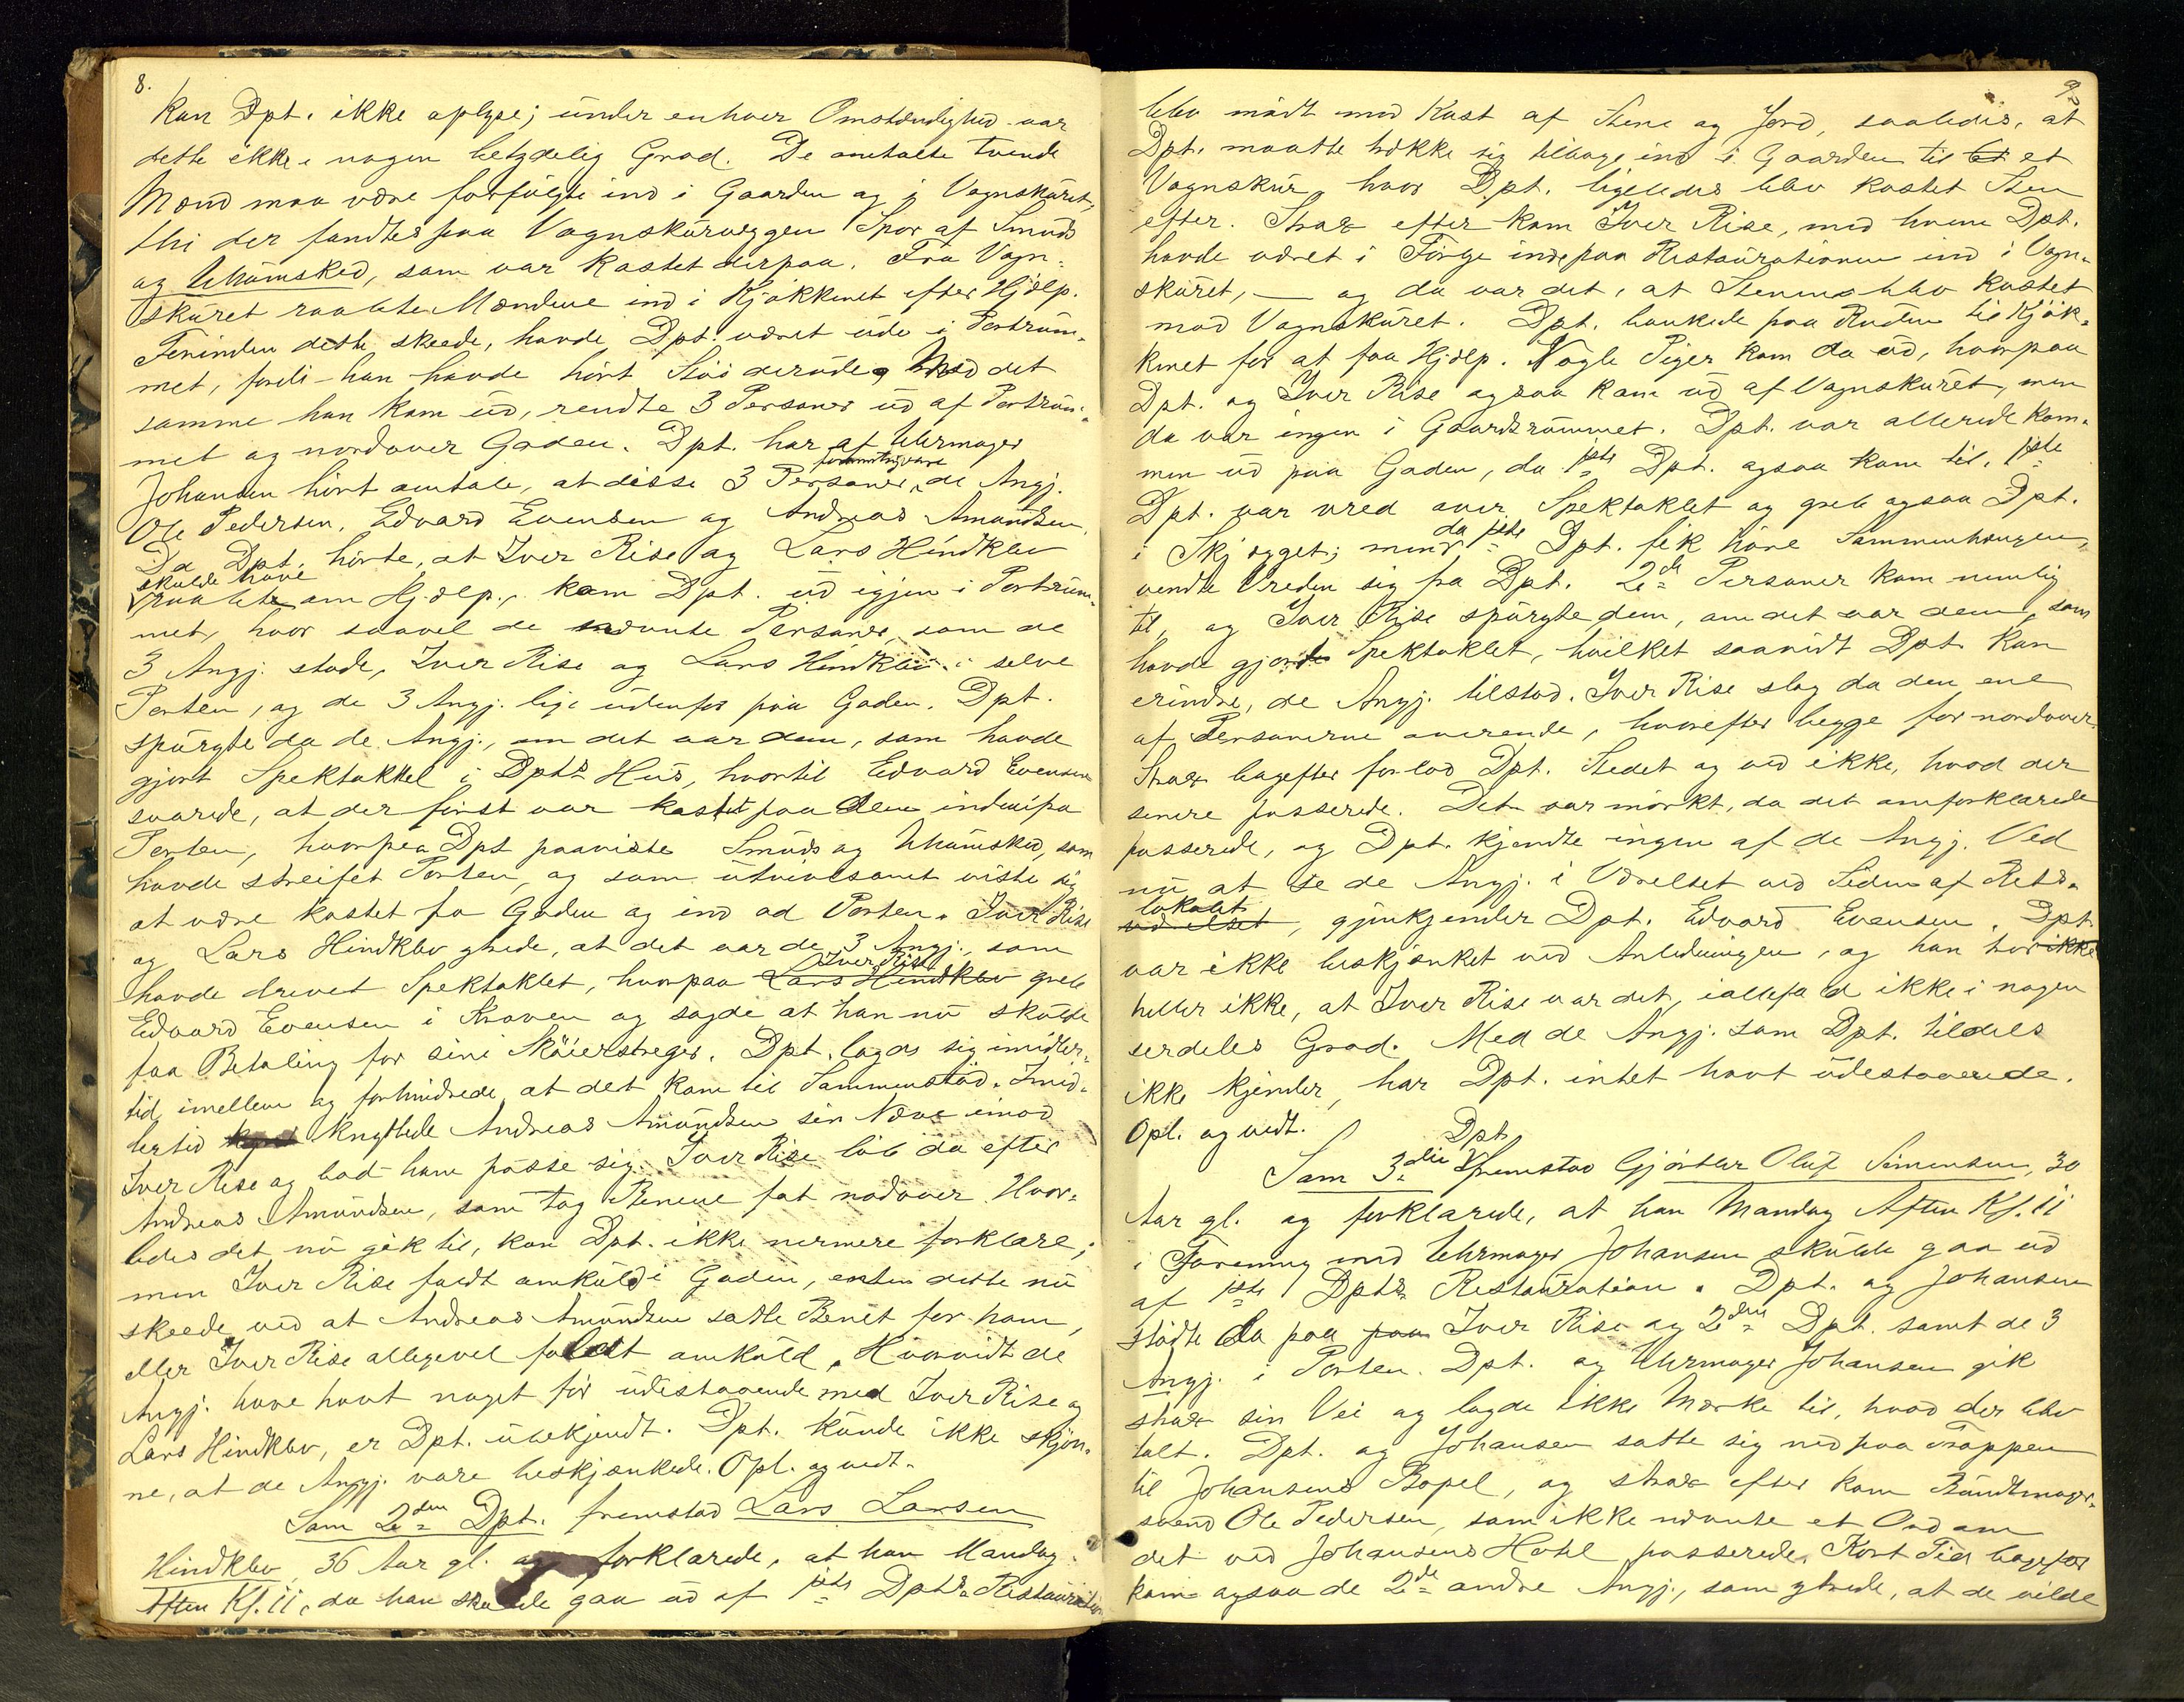 8.
kan Dpt. ikke oplyse; under enhver Omstændighed var
dette ikke i nogen betydelig Grad. De omtalte tvende
Mænd maa være forfulgte ind i Gaarden og i Vognskuret,
thi der fandtes paa Vognskurvæggen Spor af Smuds
og Uhumsked, som var kastet derpaa. Fra Vogn-
skuret raabte Mændene ind i Kjøkkenet efter Hjælp.
Forinden dette skeede, havde Dpt. været ude i Portrum-
met, fordi han havde hørt Støi derude. Med det
samme han kom ud, rendte 3 Personer ud af Portrum-
met og nordover Gaden. Dpt. har af Uhrmager
Johansen hørt omtale, at disse 3 Personer de Angj.
Ole Pedersen, Edvard Evensen og Andreas Amundsen.
Da Dpt. hørte, at Iver Rise og Lars Hindklev
skulde have
raabt om Hjælp, kom Dpt. ud igjen i Portrum-
met, hvor saavel de nævnte Personer som de
3 Angj. stode, Iver Rise og Lars Hindklev i selve
Porten, og de 3 Angj. lige udenfor paa Gaden. Dpt.
spurgte da de Angj., om det var dem, som havde
gjort Spektakkel i Dpts Hus, hvortil Edvard Evensen
svarede, at der først var kastet paa dem indenifra
Porten, hvorpaa Dpt paaviste Smuds og Uhumsked, som
havde streifet Porten, og som utvivlsomt viste sig
at være kastet fra Gaden og ind ad Porten. Iver Rise
og Lars Hindklev ytrede, at det var de 3 Angj., som
Iver Rise
havde drevet Spektaklet, hvorpaa Lars Hindklev greb
Edvard Evensen i Kraven og sagde at han nu skulde
faa Betaling for sine Skøierstreger. Dpt. lagde sig imidler-
tid imellem og forhindrede, at det kom til Sammenstød. Imid-
lertid knyttede Andreas Amundsen sin Næve imod
Iver Rise og bad ham passe sig. Iver Rise løb da efter
Andreas Amundsen, som tog Benene fat nordover. Hvor-
ledes det nu gik til, kan Dpt. ikke nærmere forklare;
men Iver Rise faldt omkuld i Gaden, enten dette nu
skeede ved at Andreas Amundsen satte Benet for ham,
eller Iver Rise alligevel faldt omkuld. Hvorvidt de
Angj. have havt noget før udestaaende med Iver Rise og
Lars Hindklev, er Dpt. ubekjendt. Dpt. kunde ikke skjøn-
ne, at de Angj. vare beskjænkede. Opl. og vedt.
Som 2den Dpt. fremstod Lars Larsen
Hindklev, 36 Aar gl. og forklarede, at han Mandag
Aften Kl. 11, da han skulde gaa ud af 1ste Dpts Restauration
9.
blev mødt med Kast af Stene og Jord, saaledes, at
Dpt. maatte trække sig tilbage ind i Gaarden til et et
Vognskur, hvor Dpt. ligeledes blev kastet Sten
efter. Strax efter kom Iver Rise, med hvem Dpt.
havde været i Følge inde paa Restaurationen ind i Vogn-
skuret, – og da var det, at Stenene blev kastet
mod Vognskuret. Dpt. bankede paa Ruden til Kjøk-
kenet for at faa Hjælp. Nogle Piger kom da ud, hvorpaa
Dpt. og Iver Rise ogsaa kom ud af Vognskuret, men
da var ingen i Gaardsrummet. Dpt. var allerede kom-
men ud paa Gaden, da 1ste Dpt. ogsaa kom til. 1ste
Dpt. var vred over Spektaklet og greb ogsaa Dpt.
da 1ste
i Skjægget; men Dpt. fik høre Sammenhængen,
vendte Vreden sig fra Dpt. 2de Personer kom nemlig
til, og Iver Rise spurgte dem, om det var dem, som
havde gjort Spektaklet, hvilket saavidt Dpt. kan
erindre, de Angj. tilstod. Iver Rise slog da den ene
af Personerne overende, hvorefter begge for nordover.
Strax bagefter forlod Dpt. Stedet og ved ikke, hvad der
senere passerede. Det var mørkt, da det omforklarede
passerede, og Dpt. kjendte ingen af de Angj. Ved
nu at se de Angj. i Værelset ved Siden af Rets-
lokalet
værelset, gjenkjender Dpt. Edvard Evensen. Dpt.
var ikke beskjænket ved Anledningen, og han tror ikke
heller ikke, at Iver Rise var det, iallefald ikke i nogen
særdeles Grad. Med de Angj. som Dpt. tildels
ikke kjender, har Dpt. intet havt udestaaende.
Opl. og vedt.
Dpt.
Som 3die fremstod Gjørtler Oluf Simensen, 30
Aar gl. og forklarede, at han Mandag Aften Kl. 11
i Forening med Uhrmager Johansen skulde gaa ud
af 1ste Dpts Restauration. Dpt. og Johansen
stødte da paa paa Iver Rise og 2den Dpt. samt de 3
Angj. i Porten. Dpt. og Uhrmager Johansen gik
strax sin Vei og lagde ikke Mærke til, hvad der blev
talt. Dpt. og Johansen satte sig ned paa Trappen
til Johansens Bopel, og strax efter kom Bundtmager-
svend Ole Pedersen, som ikke nævnte et Ord om
det ved Johansens Hotel passerede. Kort Tid bagefter
kom ogsaa de 2de andre Angj., som ytrede, at de vilde